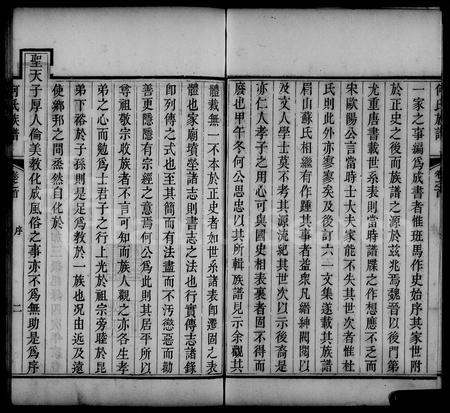 何氏族譜
一家之事編為成書者惟班馬作史始序其家世附
於正史之後而族譜之源於茲兆焉魏晉以後門第
尤重唐書載世系表則當時譜牒之作想應不乏而
宋歐陽公言當時士大夫家能不失其世次者惟杜
氏則此外亦寥寥矣及後訂六一文集遂載其族譜
眉山蘇氏相繼有作踵其事者益衆凡縉紳閥閱以
及文人學士莫不考其源流紀其世次以示後裔是
亦仁人孝子之用心可與國史相表裏者固不得而
廢也甲午冬何公思忠以其所輯族譜見示余觀其
體裁無一不本於正史者如世系諸表卽遷固之表
體也家廟墳塋諸志則書志之法也行實傳志諸錄
卽列傳之式也至其簡而有法盡而不汚懲惡而勸
善更隱隱有宗經之意焉何公為此則其居平所以
尊祖敬宗收族者不言可知而族人觀之亦各生孝
弟之心而勉為士君子之行上光於祖宗旁睦於昆
弟下裕於子孫則是足為教於一族也况由近及遠
使鄉邦之間烝然自化於
聖天子厚人倫美教化成風俗之事亦不為無助是為序
何氏族譜
卷首
序
二